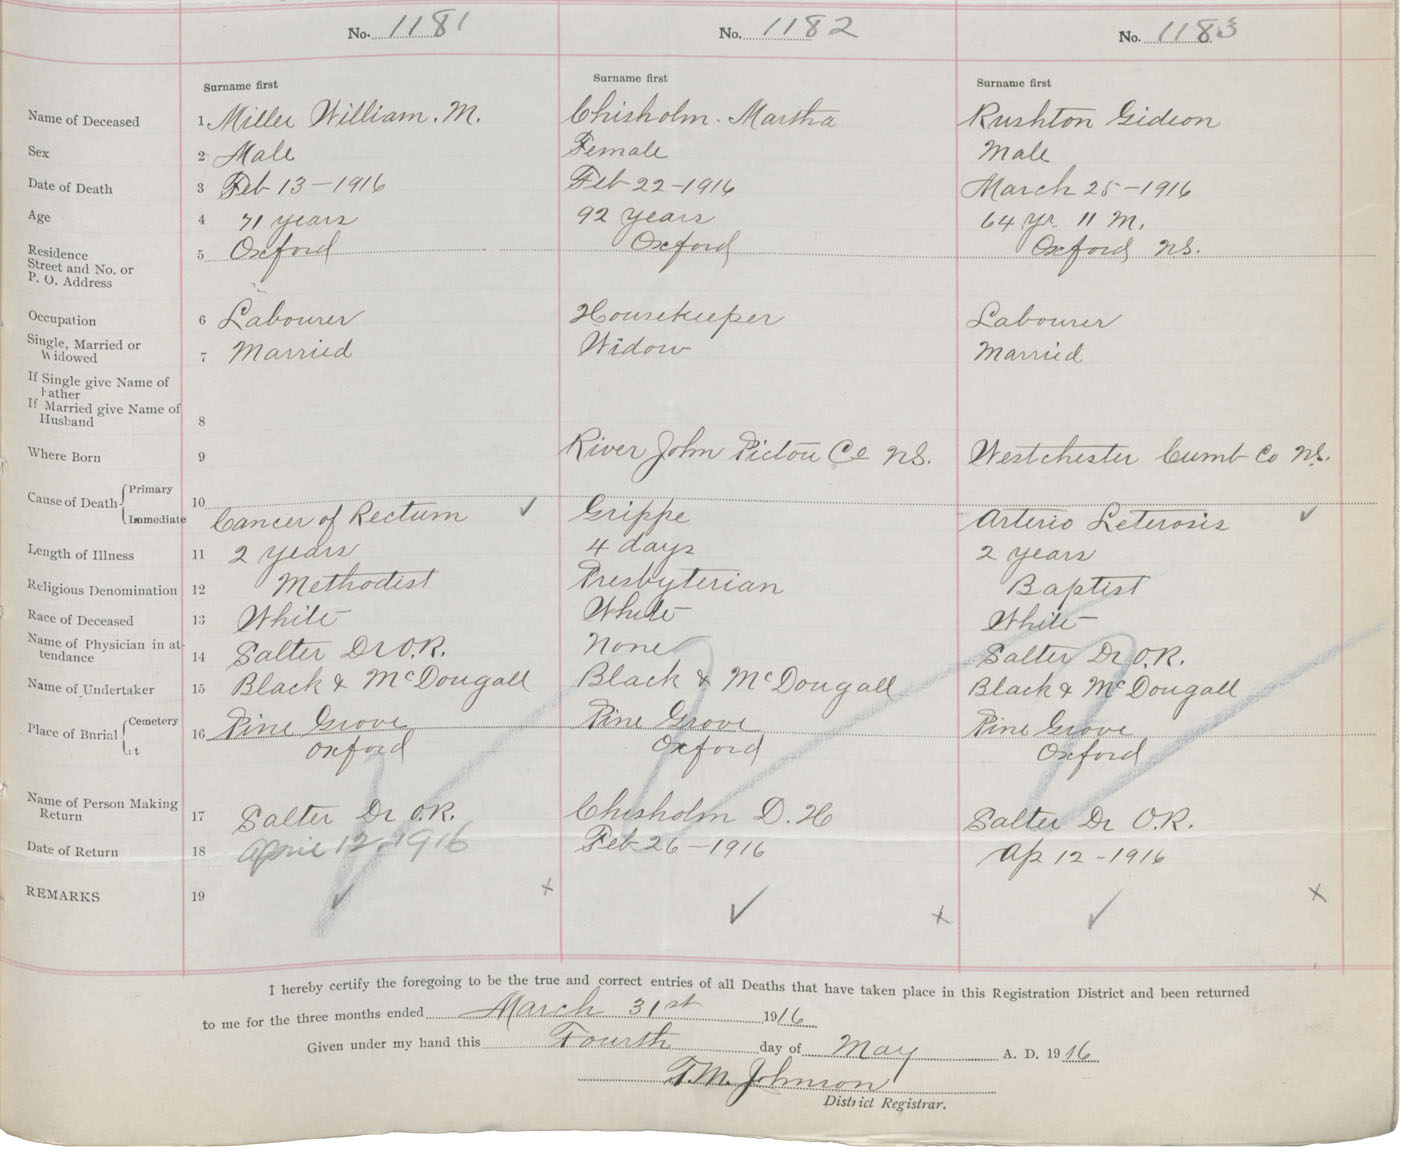 No. 1181 No. 1182 No. 1183
Surname first Surname first Surname first
Name of Deceased 1 Miller William. M. Chisholm. Martha Rushton Gideon
Sex 2 Male Female Male
Date of Death 3 Feb 13-1916 Feb 22-1916 March 25-1916
Age 4 71 years 92 years 64 yr. 11 M.
Residence 5 Oxford Oxford Oxford NS.
Street and No. or
P. O. Address
Occupation 6 Labourer Housekeeper Labourer
Single, Married or
Widowed 7 Married Widow Married
If Single give Name of
Father
If Married give Name of
Husband 8
Where Born 9 River John Pictou Co NS. Westchester Cumb Co NS.
Cause of Death { Primary 10
Immediate Cancer of Rectum ✓ Grippe Arterio Leterosis ✓
Length of Illness 11 2 years 4 days 2 years
Religious Denomination 12 Methodist Presbyterian Baptist
Race of Deceased 13 White White White
Name of Physician in at-
tendance 14 Salter Dr O.R. None Salter Dr O.R.
Name of Undertaker 15 Black & McDougall Black & McDougall Black & McDougall
Place of Burial { Cemetery 16 Pine Grove Pine Grove Pine Grove
At Oxford Oxford Oxford
Name of Person Making
Return 17 Salter Dr O.R. Chisholm D. H Salter Dr O.R.
Date of Return 18 April 12, 1916 Feb 26-1916 Ap 12-1916
REMARKS 19 ✓ x ✓ x ✓ x
I hereby certify the foregoing to be the true and correct entries of all Deaths that have taken place in this Registration District and been returned
to me for the three months ended March 31st 1916
Given under my hand this Fourth day of May A. D. 1916
T.M. Johnson
District Registrar.